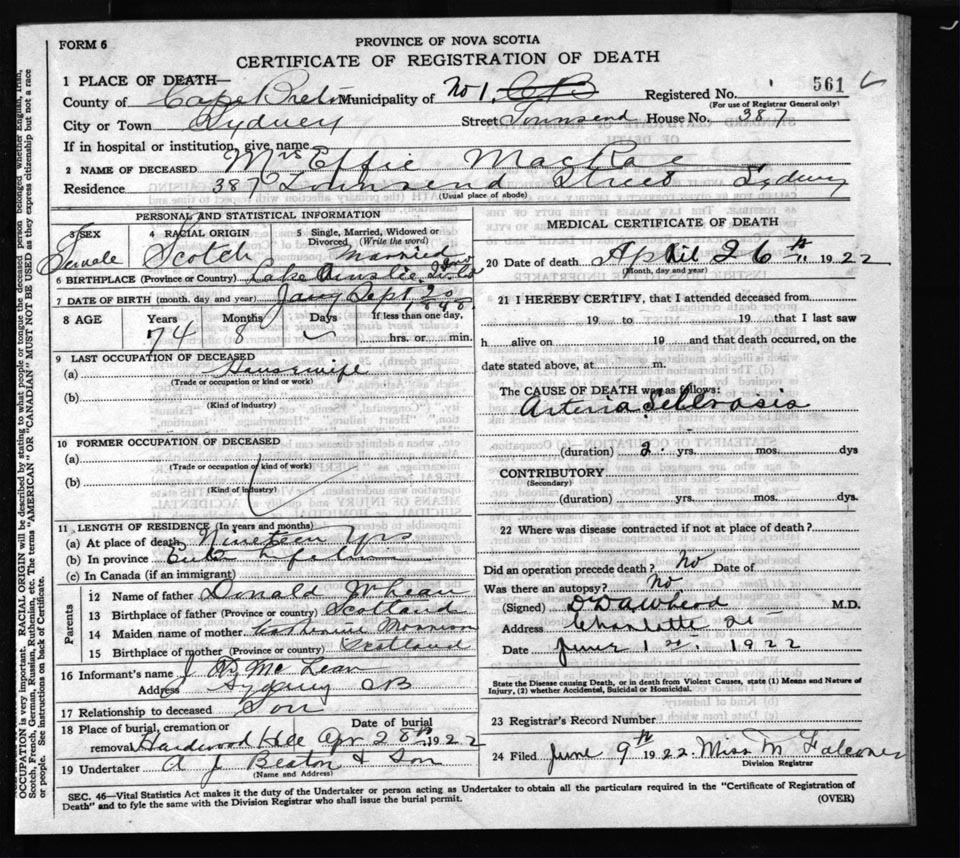 FORM 6
PROVINCE OF NOVA SCOTIA
CERTIFICATE OF REGISTRATION OF DEATH
1 PLACE OF DEATH—
County of Cape Breton Municipality of No 1. CB Registered No. 561
(For use of Registrar General only)
City or Town Sydney Street Townsend House No. 387
If in hospital or institution, give name
2 NAME OF DECEASED Mrs Effie MacRae
Residence 387 Townsend Street Sydney
(Usual place of abode)
PERSONAL AND STATISTICAL INFORMATION
3 SEX Female 4 RACIAL ORIGIN Scotch 5 Single, Married, Widowed or Divorced, (Write the word) Married
6 BIRTHPLACE (Province or Country) Lake Ainslie
7 DATE OF BIRTH (month, day and year) Sept 20
8 AGE Years 74 Months 8 Days If less than one day, hrs. or min.
9 LAST OCCUPATION OF DECEASED
(a) Housewife
(Trade or occupation or kind of work)
(b)
(Kind of industry)
10 FORMER OCCUPATION OF DECEASED
(a)
(Trade or occupation or kind of work)
(b)
(Kind of industry)
11 LENGTH OF RESIDENCE (In years and months)
(a) At place of death Nineteen Yrs
(b) In province
(c) In Canada (if an immigrant)
Parents
12 Name of father Donald
13 Birthplace of father (Province or country) Scotland
14 Maiden name of mother Katherine Morrison
15 Birthplace of mother (Province or country) Scotland
16 Informant's name J D McLean
Address Sydney CB
17 Relationship to deceased Son
18 Place of burial, cremation or removal Hardwood Hill Date of burial Apr 28th 1922
19 Undertaker A J Beaton & Son
(Name and Address)
MEDICAL CERTIFICATE OF DEATH
20 Date of death April 26th 1922
(Month, day and year)
21 I HEREBY CERTIFY, that I attended deceased from
19 to 19 that I last saw
h alive on 19 and that death occurred, on the
date stated above, at m.
The CAUSE OF DEATH was as follows:
Arteria Sclerosis
(duration) 2 yrs. mos. dys
CONTRIBUTORY
(Secondary)
(duration) yrs. mos. dys.
22 Where was disease contracted if not at place of death?
Did an operation precede death? No Date of
Was there an autopsy? No
(Signed) M.D.
Address Charlotte St
Date June 1st. 1922
State the Disease causing Death, or in death from Violent Causes, state (1) Means and Nature of
Injury, (2) whether Accidental, Suicidal or Homicidal.
23 Registrar's Record Number
24 Filed June 9th 1922 Miss M Falconer
Division Registrar
SEC. 46—Vital Statistics Act makes it the duty of the Undertaker or person acting as Undertaker to obtain all the particulars required in the "Certificate of Registration of
Death" and to fyle the same with the Division Registrar who shall issue the burial permit.
(OVER)
OCCUPATION is very important. RACIAL ORIGIN will be described by stating to what people or tongue the deceased person belonged whether English, Irish,
Scotch, French, German, Russian, Ruthenian, etc. The terms "AMERICAN" OR "CANADIAN MUST NOT BE USED as they express citizenship but not a race
or people. See instructions on back of Certificate.